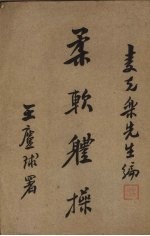 麦克乐先生编
柔軟體操
王廑球署